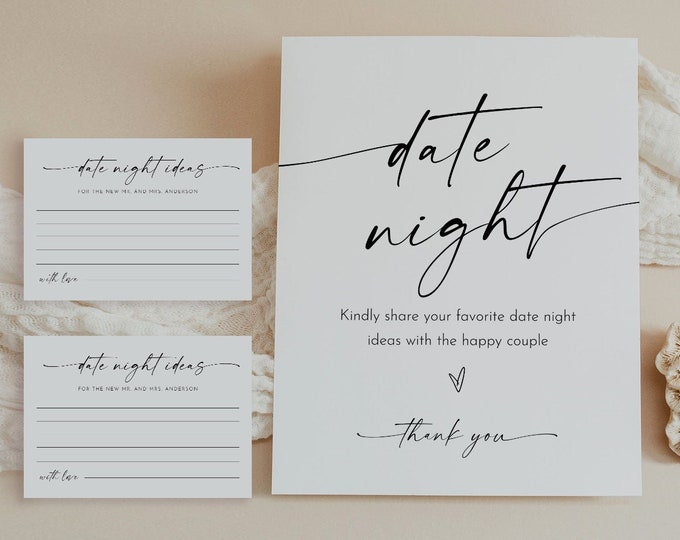 date night ideas
FOR THE NEW MR. AND MRS. ANDERSON
with love
date night ideas
FOR THE NEW MR. AND MRS. ANDERSON
with love
date
night
Kindly share your favorite date night
ideas with the happy couple
thank you